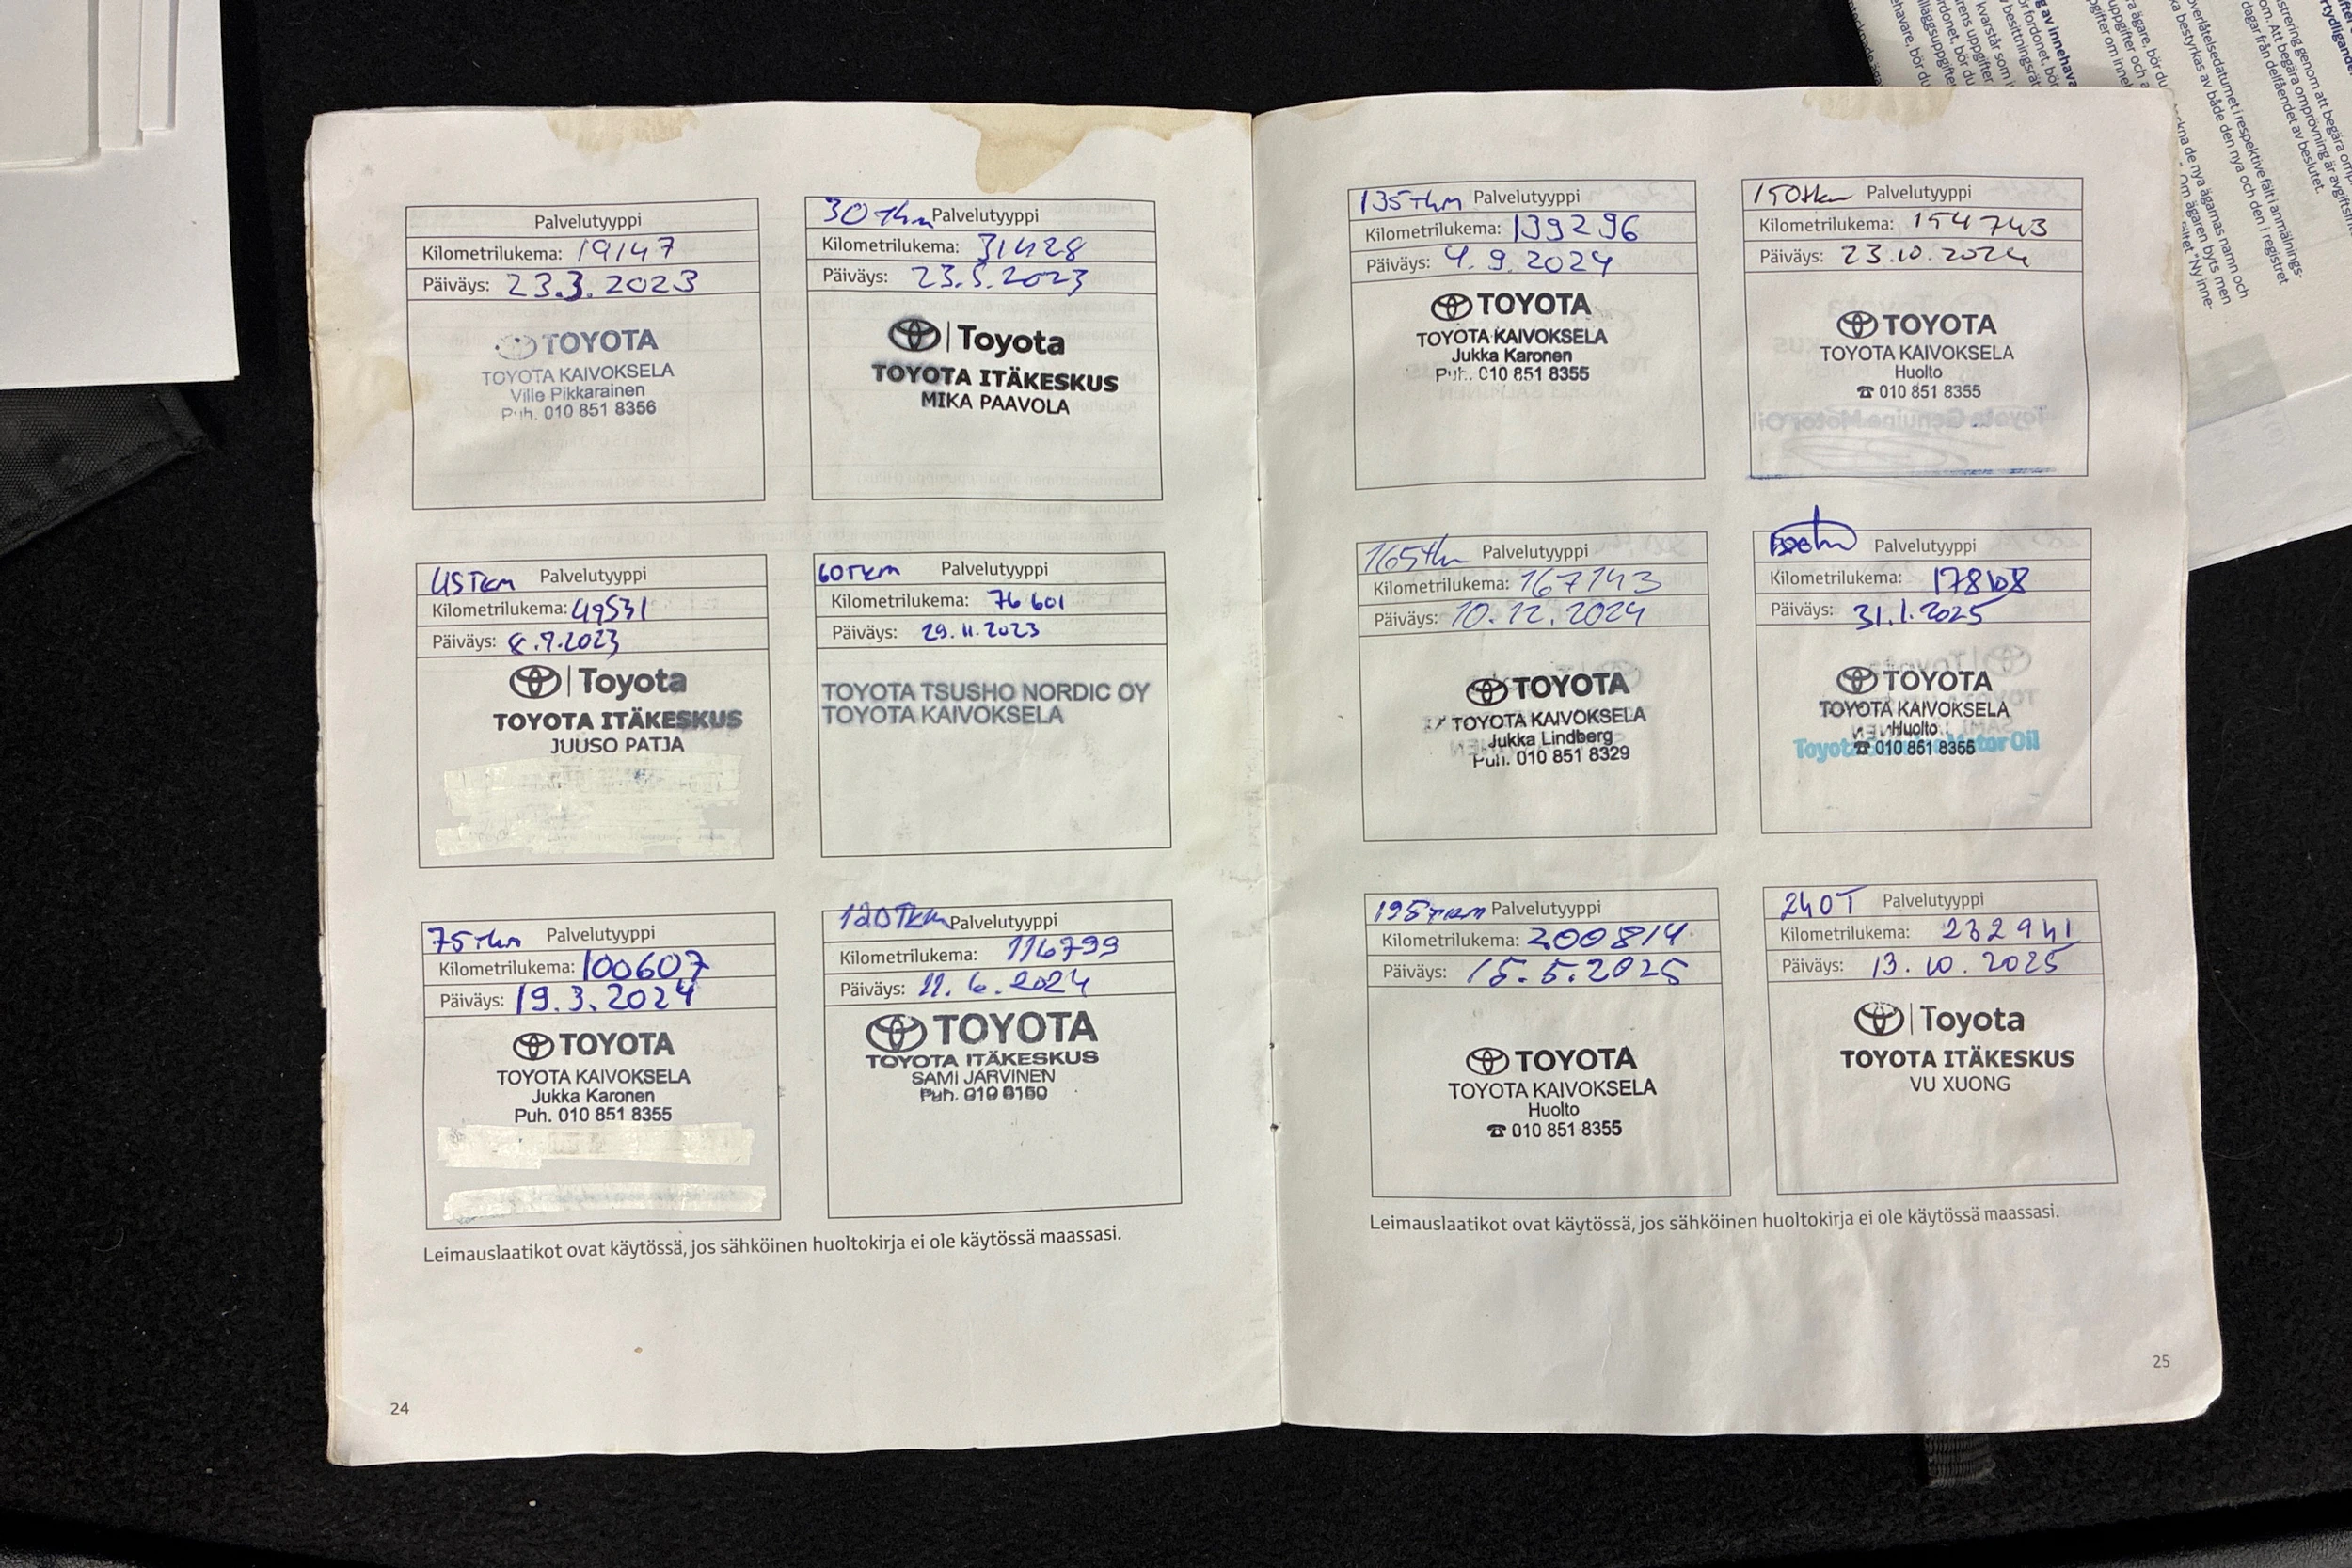 Palvelutyyppi
Kilometrilukema: 19147
Päiväys: 23.3.2023
TOYOTA
TOYOTA KAIVOKSELA
Ville Pikkarainen
Puh. 010 851 8356
30 Tkm Palvelutyyppi
Kilometrilukema: 31428
Päiväys: 23.5.2023
Toyota
TOYOTA ITÄKESKUS
MIKA PAAVOLA
45 Tkm Palvelutyyppi
Kilometrilukema: 49531
Päiväys: 8.9.2023
Toyota
TOYOTA ITÄKESKUS
JUUSO PATJA
60 Tkm Palvelutyyppi
Kilometrilukema: 76 601
Päiväys: 29.11.2023
TOYOTA TSUSHO NORDIC OY
TOYOTA KAIVOKSELA
75 Tkm Palvelutyyppi
Kilometrilukema: 100607
Päiväys: 19.3.2024
TOYOTA
TOYOTA KAIVOKSELA
Jukka Karonen
Puh. 010 851 8355
120 Tkm Palvelutyyppi
Kilometrilukema: 116799
Päiväys: 11.6.2024
TOYOTA
TOYOTA ITÄKESKUS
SAMI JÄRVINEN
Puh. 010 8150
Leimauslaatikot ovat käytössä, jos sähköinen huoltokirja ei ole käytössä maassasi.
24
135 Tkm Palvelutyyppi
Kilometrilukema: 139296
Päiväys: 4.9.2024
TOYOTA
TOYOTA KAIVOKSELA
Jukka Karonen
Puh. 010 851 8355
150 tkm Palvelutyyppi
Kilometrilukema: 154743
Päiväys: 23.10.2024
TOYOTA
TOYOTA KAIVOKSELA
Huolto
☎ 010 851 8355
165 tkm Palvelutyyppi
Kilometrilukema: 167143
Päiväys: 10.12.2024
TOYOTA
TOYOTA KAIVOKSELA
Jukka Lindberg
Puh. 010 851 8329
Palvelutyyppi
Kilometrilukema:
Päiväys: 31.1.2025
TOYOTA
TOYOTA KAIVOKSELA
Huolto
☎ 010 851 8355
Toyota Motor Oil
195 Tkm Palvelutyyppi
Kilometrilukema: 200814
Päiväys: 15.5.2025
TOYOTA
TOYOTA KAIVOKSELA
Huolto
☎ 010 851 8355
240T Palvelutyyppi
Kilometrilukema: 232941
Päiväys: 13.10.2025
Toyota
TOYOTA ITÄKESKUS
VU XUONG
Leimauslaatikot ovat käytössä, jos sähköinen huoltokirja ei ole käytössä maassasi.
25